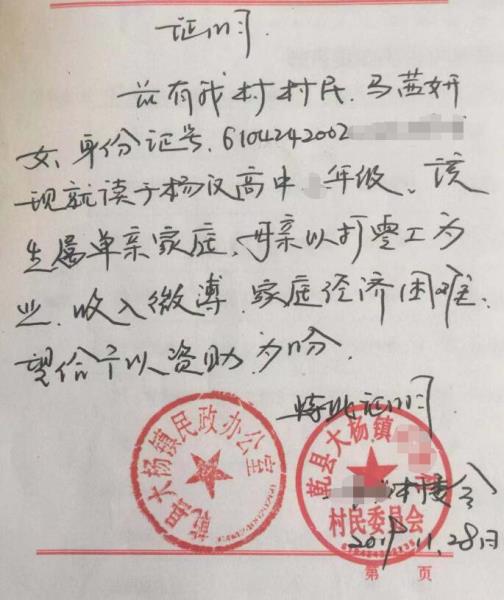 证明
兹有我村村民.马茜妍
女、身份证号.6104242002
现就读于杨汉高中 年级、该
生属单亲家庭、母亲以打零工为
业.收入微薄.家庭经济困难.
望给予以资助为盼.
特此证明
乾县大杨镇民政办公室
乾县大杨镇
村民委员会
村
11.28日
第 页